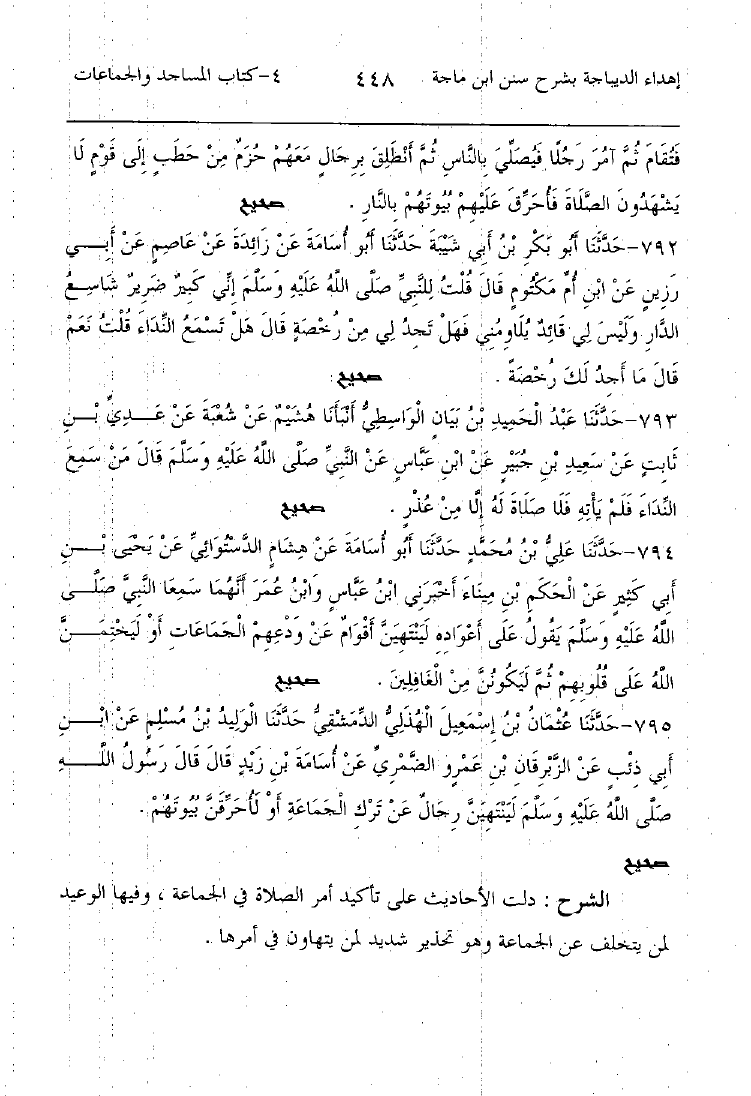 إهداء الديباجة بشرح سنن ابن ماجة ٤٤٨ ٤-كتاب المساجد والجماعات
فَتُقَامَ ثُمَّ آمُرَ رَجُلًا فَيُصَلِّيَ بِالنَّاسِ ثُمَّ أَنْطَلِقَ بِرِجَالٍ مَعَهُمْ حُزَمٌ مِنْ حَطَبٍ إِلَى قَوْمٍ لَا
يَشْهَدُونَ الصَّلَاةَ فَأُحَرِّقَ عَلَيْهِمْ بُيُوتَهُمْ بِالنَّارِ . صحيح
٧٩٢-حَدَّثَنَا أَبُو بَكْرِ بْنُ أَبِي شَيْبَةَ حَدَّثَنَا أَبُو أُسَامَةَ عَنْ زَائِدَةَ عَنْ عَاصِمٍ عَنْ أَبِي
رَزِينٍ عَنْ ابْنِ أُمِّ مَكْتُومٍ قَالَ قُلْتُ لِلنَّبِيِّ صَلَّى اللَّهُ عَلَيْهِ وَسَلَّمَ إِنِّي كَبِيرٌ ضَرِيرٌ شَاسِعُ
الدَّارِ وَلَيْسَ لِي قَائِدٌ يُلَاوِمُنِي فَهَلْ تَجِدُ لِي مِنْ رُخْصَةٍ قَالَ هَلْ تَسْمَعُ النِّدَاءَ قُلْتُ نَعَمْ
قَالَ مَا أَجِدُ لَكَ رُخْصَةً . صحيح
٧٩٣-حَدَّثَنَا عَبْدُ الْحَمِيدِ بْنُ بَيَانٍ الْوَاسِطِيُّ أَنْبَأَنَا هُشَيْمٌ عَنْ شُعْبَةَ عَنْ عَدِيِّ بْنِ
ثَابِتٍ عَنْ سَعِيدِ بْنِ جُبَيْرٍ عَنْ ابْنِ عَبَّاسٍ عَنْ النَّبِيِّ صَلَّى اللَّهُ عَلَيْهِ وَسَلَّمَ قَالَ مَنْ سَمِعَ
النِّدَاءَ فَلَمْ يَأْتِهِ فَلَا صَلَاةَ لَهُ إِلَّا مِنْ عُذْرٍ . صحيح
٧٩٤-حَدَّثَنَا عَلِيُّ بْنُ مُحَمَّدٍ حَدَّثَنَا أَبُو أُسَامَةَ عَنْ هِشَامٍ الدَّسْتُوَائِيِّ عَنْ يَحْيَى بْنِ
أَبِي كَثِيرٍ عَنْ الْحَكَمِ بْنِ مِينَاءَ أَخْبَرَنِي ابْنُ عَبَّاسٍ وَابْنُ عُمَرَ أَنَّهُمَا سَمِعَا النَّبِيَّ صَلَّى
اللَّهُ عَلَيْهِ وَسَلَّمَ يَقُولُ عَلَى أَعْوَادِهِ لَيَنْتَهِيَنَّ أَقْوَامٌ عَنْ وَدْعِهِمْ الْجَمَاعَاتِ أَوْ لَيَخْتِمَنَّ
اللَّهُ عَلَى قُلُوبِهِمْ ثُمَّ لَيَكُونُنَّ مِنْ الْغَافِلِينَ . صحيح
٧٩٥-حَدَّثَنَا عُثْمَانُ بْنُ إِسْمَعِيلَ الْهُذَلِيُّ الدِّمَشْقِيُّ حَدَّثَنَا الْوَلِيدُ بْنُ مُسْلِمٍ عَنْ ابْنِ
أَبِي ذِئْبٍ عَنْ الزِّبْرِقَانِ بْنِ عَمْرٍو الضَّمْرِيِّ عَنْ أُسَامَةَ بْنِ زَيْدٍ قَالَ قَالَ رَسُولُ اللَّهِ
صَلَّى اللَّهُ عَلَيْهِ وَسَلَّمَ لَيَنْتَهِيَنَّ رِجَالٌ عَنْ تَرْكِ الْجَمَاعَةِ أَوْ لَأُحَرِّقَنَّ بُيُوتَهُمْ .
صحيح
الشرح : دلت الأحاديث على تأكيد أمر الصلاة في الجماعة ، وفيها الوعيد
لمن يتخلف عن الجماعة وهو تحذير شديد لمن يتهاون في أمرها .